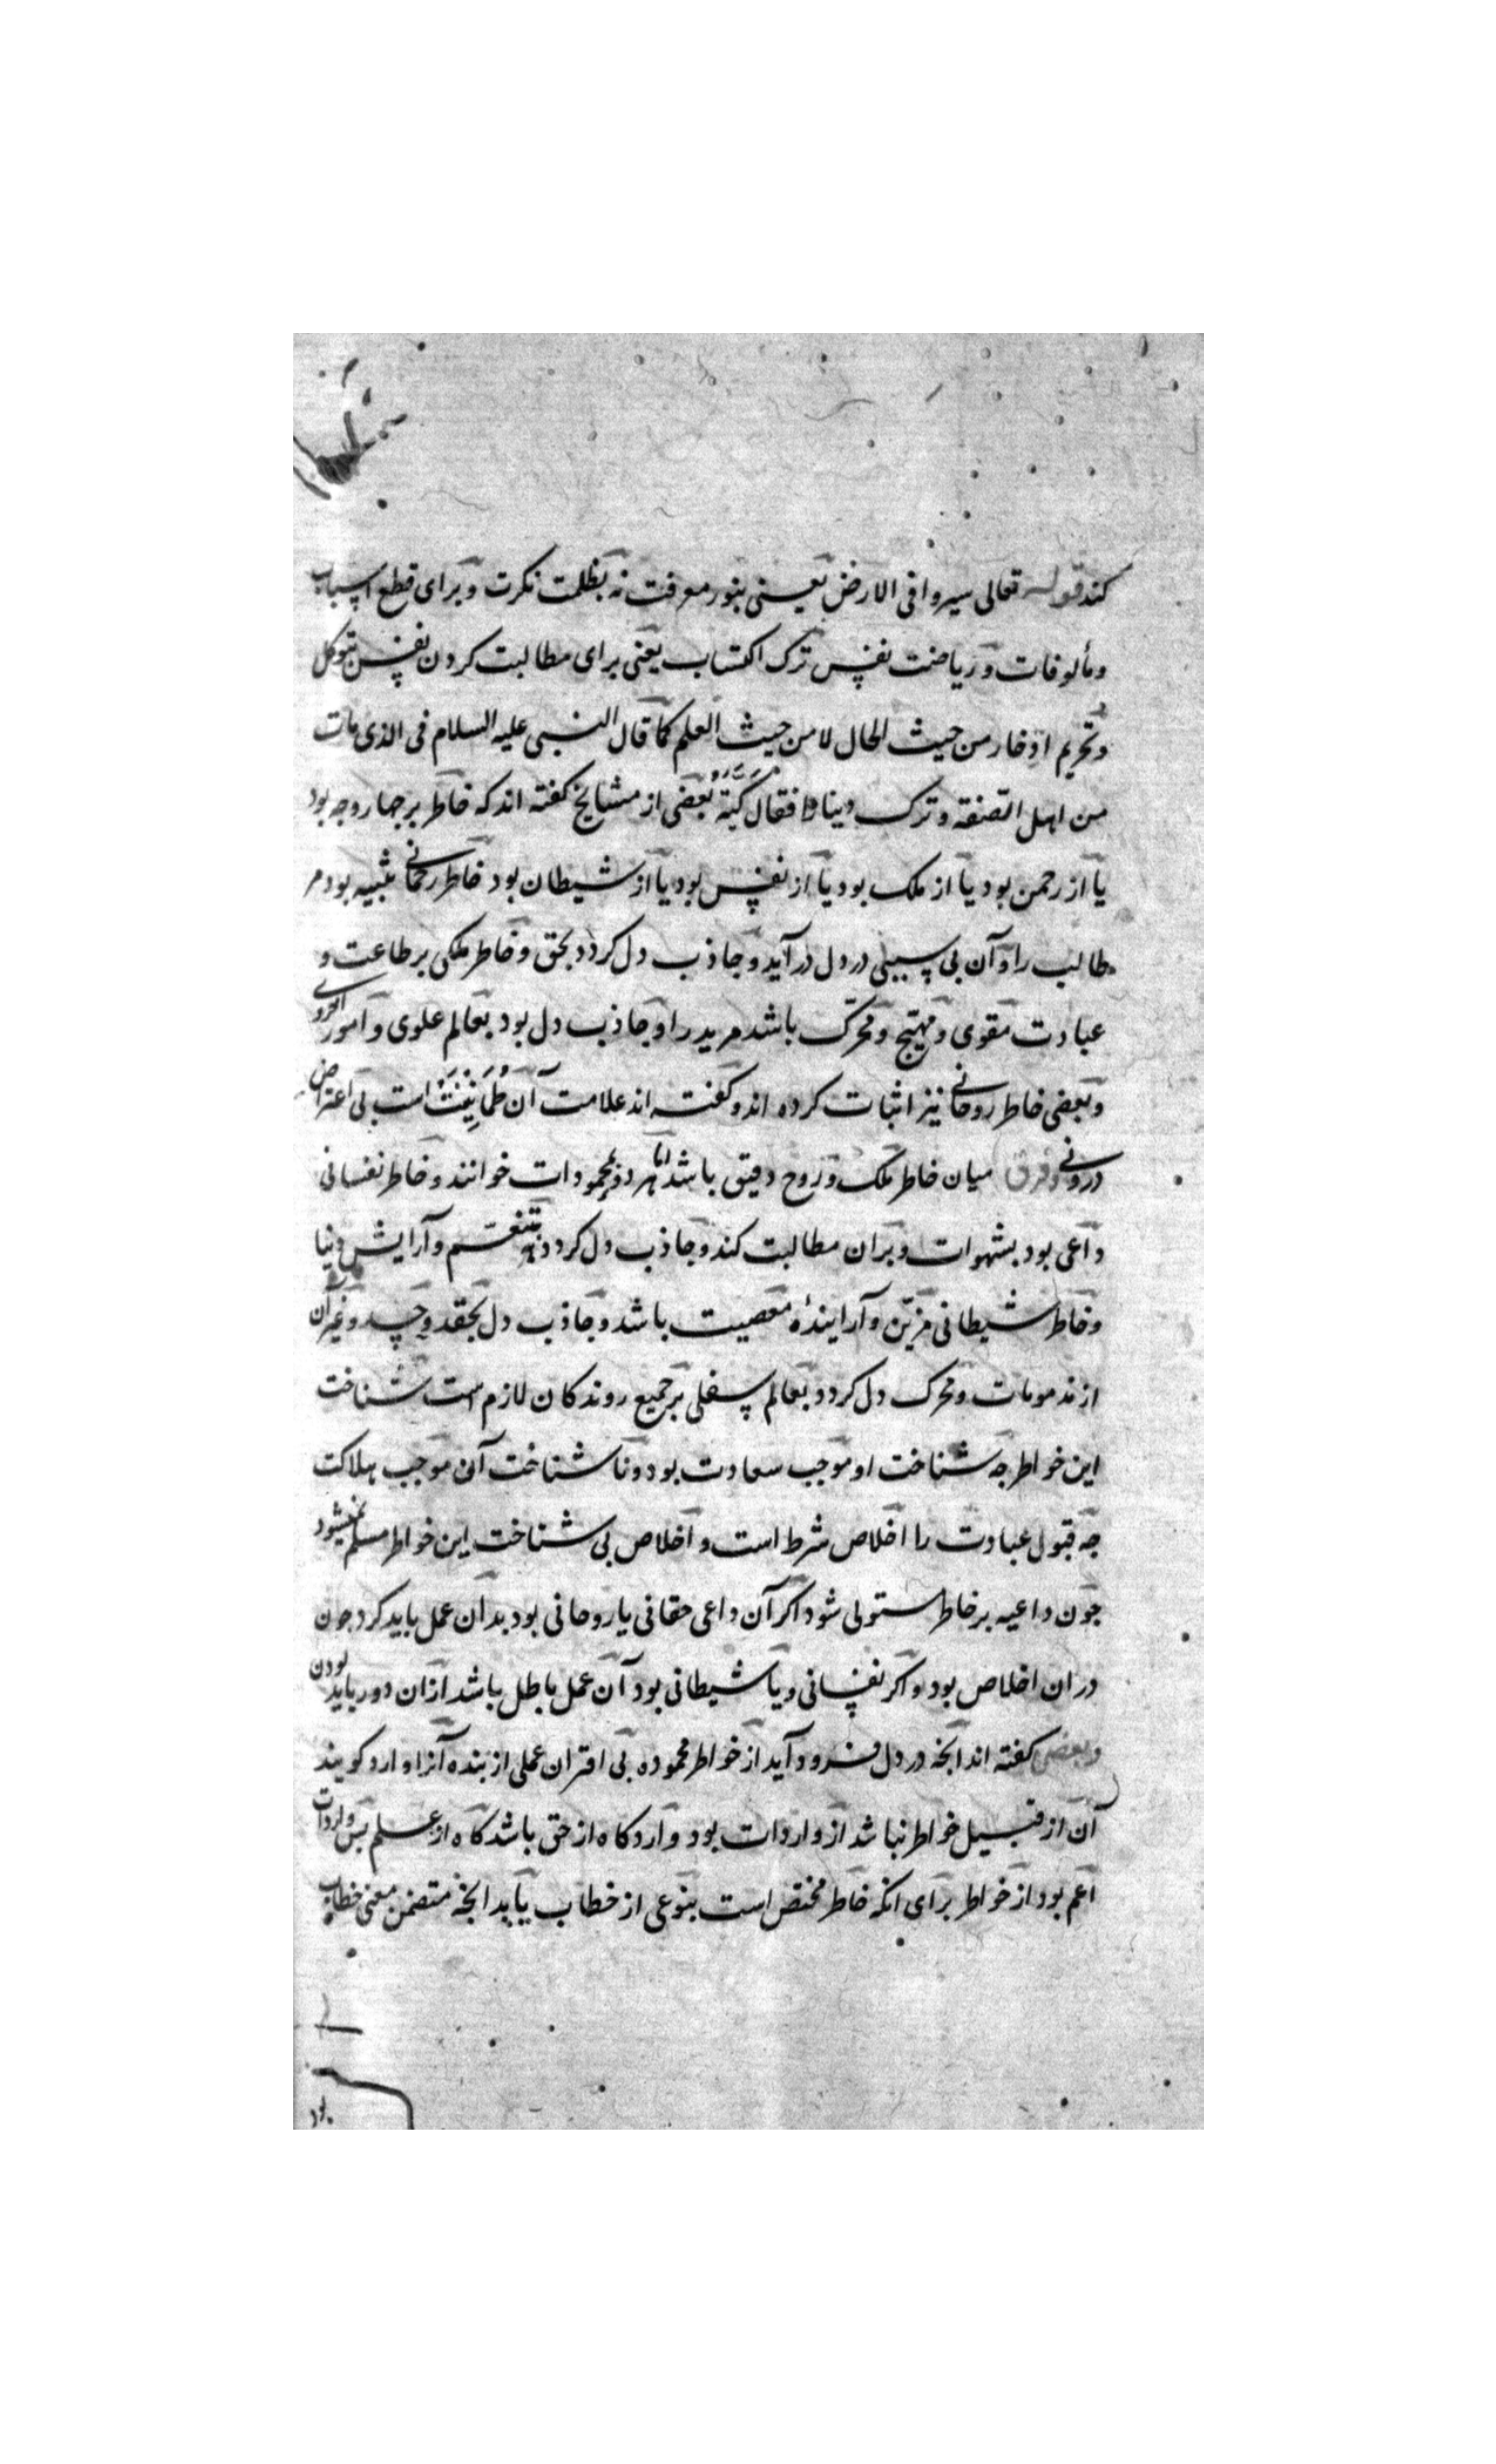 کند قوله تعالی سیروا فی الارض یعنی بنور معرفت نه بظلمت نکرت و برای قطع اسباب
و مألوفات و ریاضت نفس ترک اکتساب یعنی برای مطالبت کردن نفس بتوکل
و تحریم ادخار من حیث الحال لا من حیث العلم کما قال النبی علیه السلام فی الذی مات
من اهل الصفه و ترک دینارا فقال کیّة بعضی از مشایخ کفته اند که خاطر بر جهار وجه بود
یا از رحمن بود یا از ملک بود یا از نفس بود یا از شیطان بود خاطر رحمانی تنبیه بود مر
طالب را و آن بی سببی در دل درآید و جاذب دل کردد بحق و خاطر ملکی بر طاعت و
عبادت مقوی و مهیّج و محرّک باشد مرید را و جاذب دل بود بعالم علوی و امور اخروی
و بعضی خاطر روحانی نیز اثبات کرده اند و کفته اند علامت آن طُمَانِینَتْ است بی اعتراض
درونی و فرق میان خاطر ملک و روح دقیق باشد اما هر دو محمودات خوانند و خاطر نفسانی
داعی بود بشهوات و بران مطالبت کند و جاذب دل کردد بتنعّم و آرایش دنیا
و خاطر شیطانی مزیّن و آرایندهٔ معصیت باشد و جاذب دل بحقد و حسد و غیر آن
از مذمومات و محرک دل کردد بعالم سفلی بر جمیع روندکان لازم است شناخت
این خواطر جه شناخت او موجب سعادت بود و نا شناخت آن موجب هلاکت
جه قبول عبادت را اخلاص شرط است و اخلاص بی شناخت این خواطر مسلم نمیشود
جون داعیه بر خاطر مستولی شود اکر آن داعی حقانی یا روحانی بود بدان عمل باید کرد جون
دران اخلاص بود و اکر نفسانی و یا شیطانی بود آن عمل باطل باشد ازان دور باید بودن
و بعضی کفته اند انجه در دل فرود آید از خواطر محموده بی اقتران عملی از بنده آنرا وارد کویند
آن از قبیل خواطر نباشد از واردات بود و وارد کاه از حق باشد کاه از علم بس واردات
اعم بود از خواطر برای انکه خاطر مختص است بنوعی از خطاب یا بدانجه متضمن معنی خطاب
بود